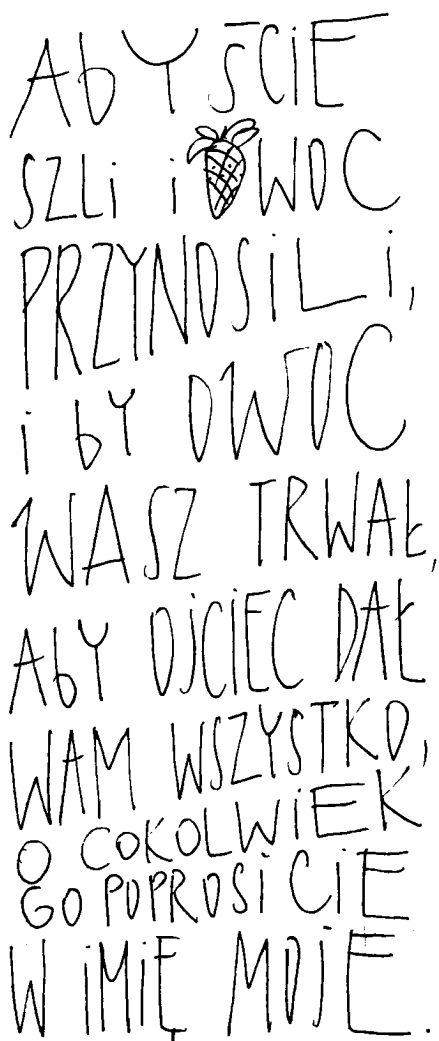 ABYŚCIE
SZLI I OWOC
PRZYNOSILI,
I BY OWOC
WASZ TRWAŁ,
ABY OJCIEC DAŁ
WAM WSZYSTKO,
O COKOLWIEK
GO POPROSICIE
W IMIĘ MOJE.